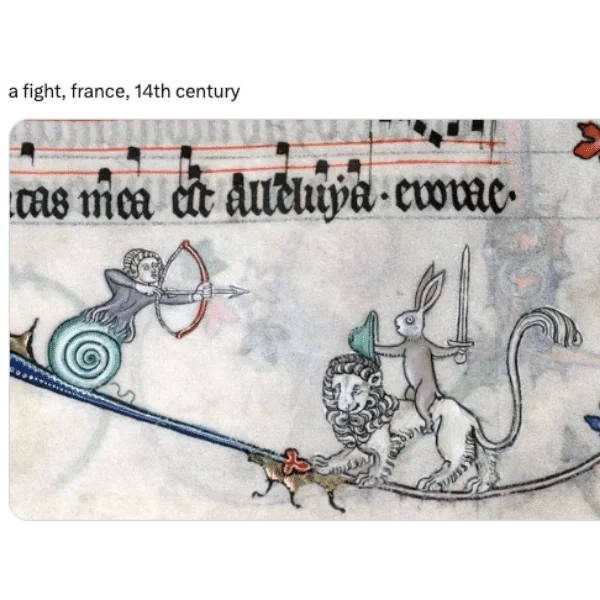 a fight, france, 14th century
tas mea est alleluya · evovae·